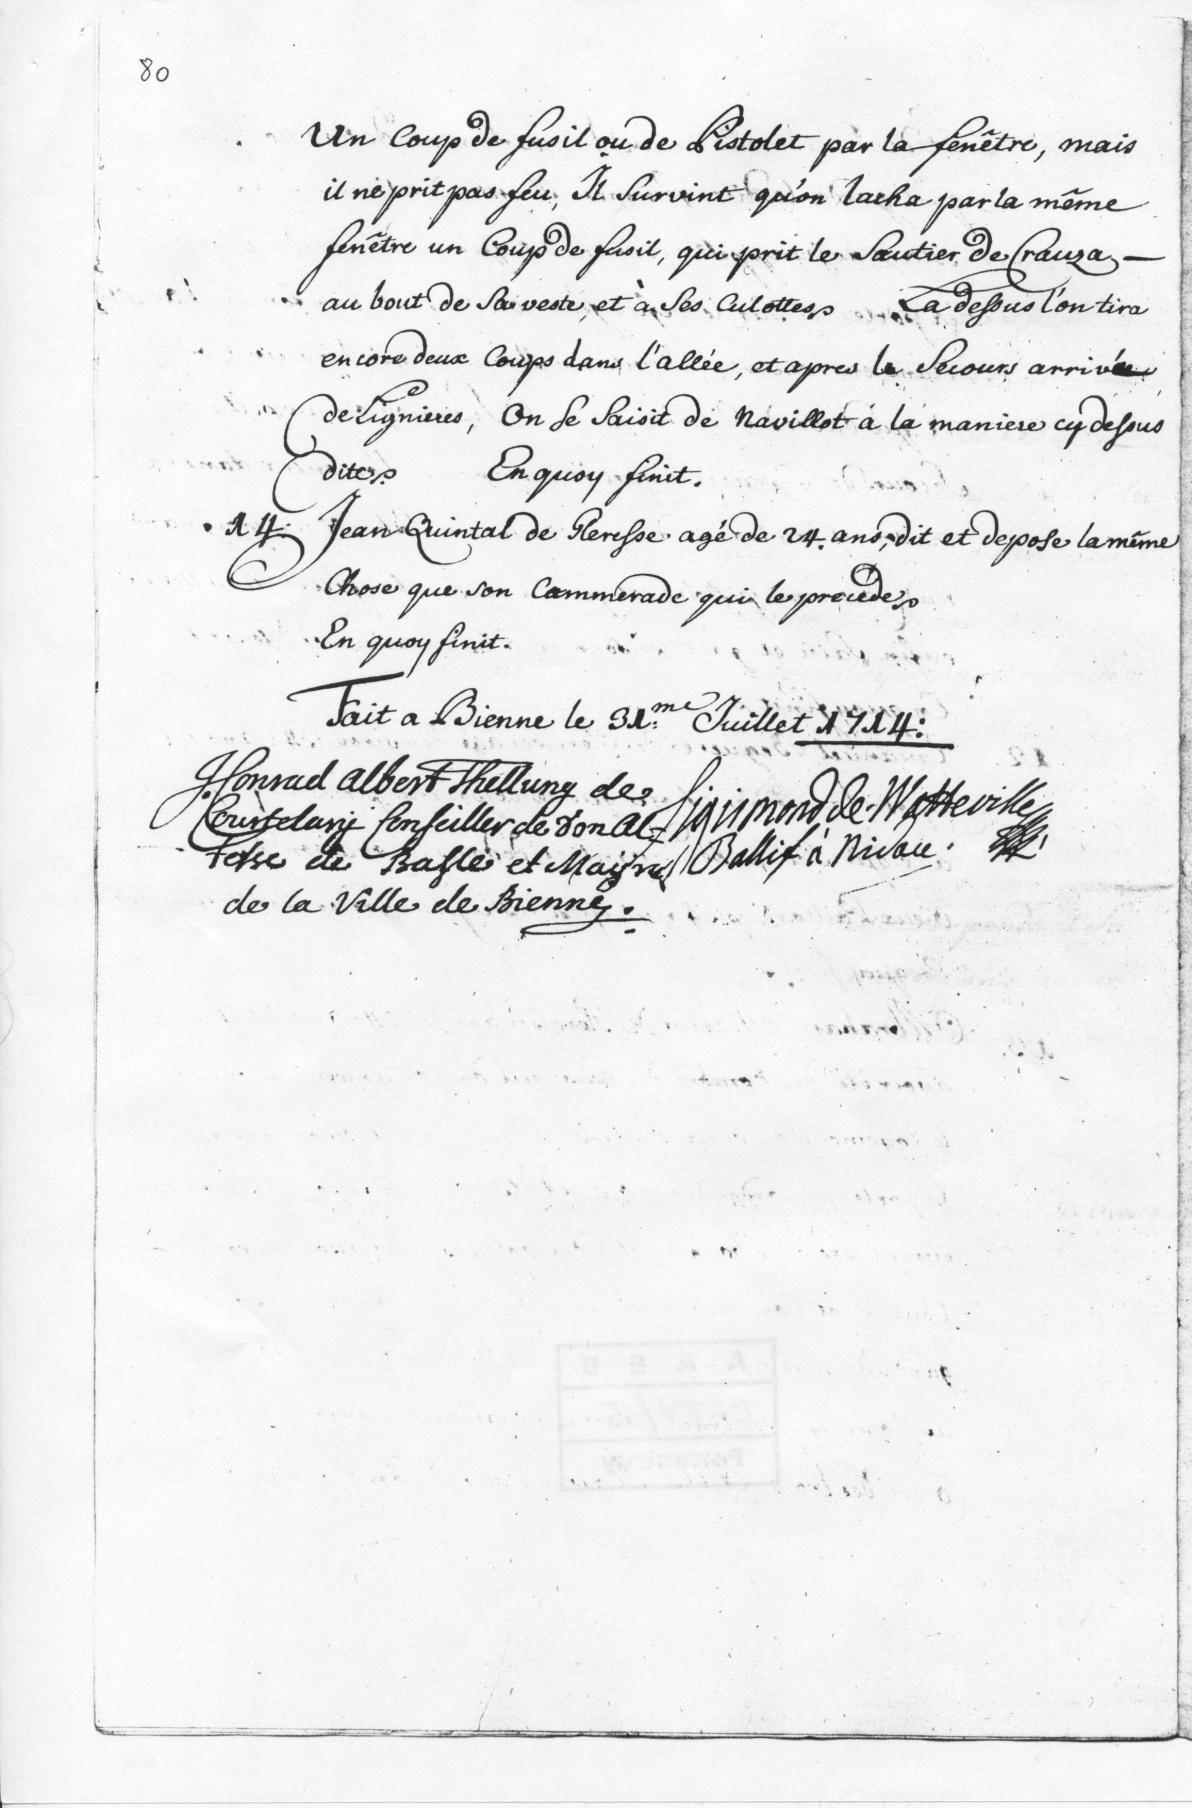 80
Un Coup de fusil ou de Pistolet par la fenêtre, mais
il ne prit pas feu, Il survint qu'on lacha par la même
fenêtre un Coup de fusil, qui prit le Sautier de Crauza –
au bout de sa veste, et à ses Culottes. La dessus l'on tira
encore deux Coups dans l'allée, et apres le Secours arrivée
de Lignieres, On se saisit de Navillot à la maniere cy dessus
dite. En quoy finit.
14. Jean Quintal de Gleresse agé de 24. ans, dit et depose la même
Chose que son Cammerade qui le precede.
En quoy finit.
Fait a Bienne le 31.me Juillet 1714:
J. Conrad Albert Thellung de
Courtelary Conseiller de Son Al-
tesse de Basle et Mayre
de la Ville de Bienne.
Sigismond de Watteville
Ballif à Nidau.